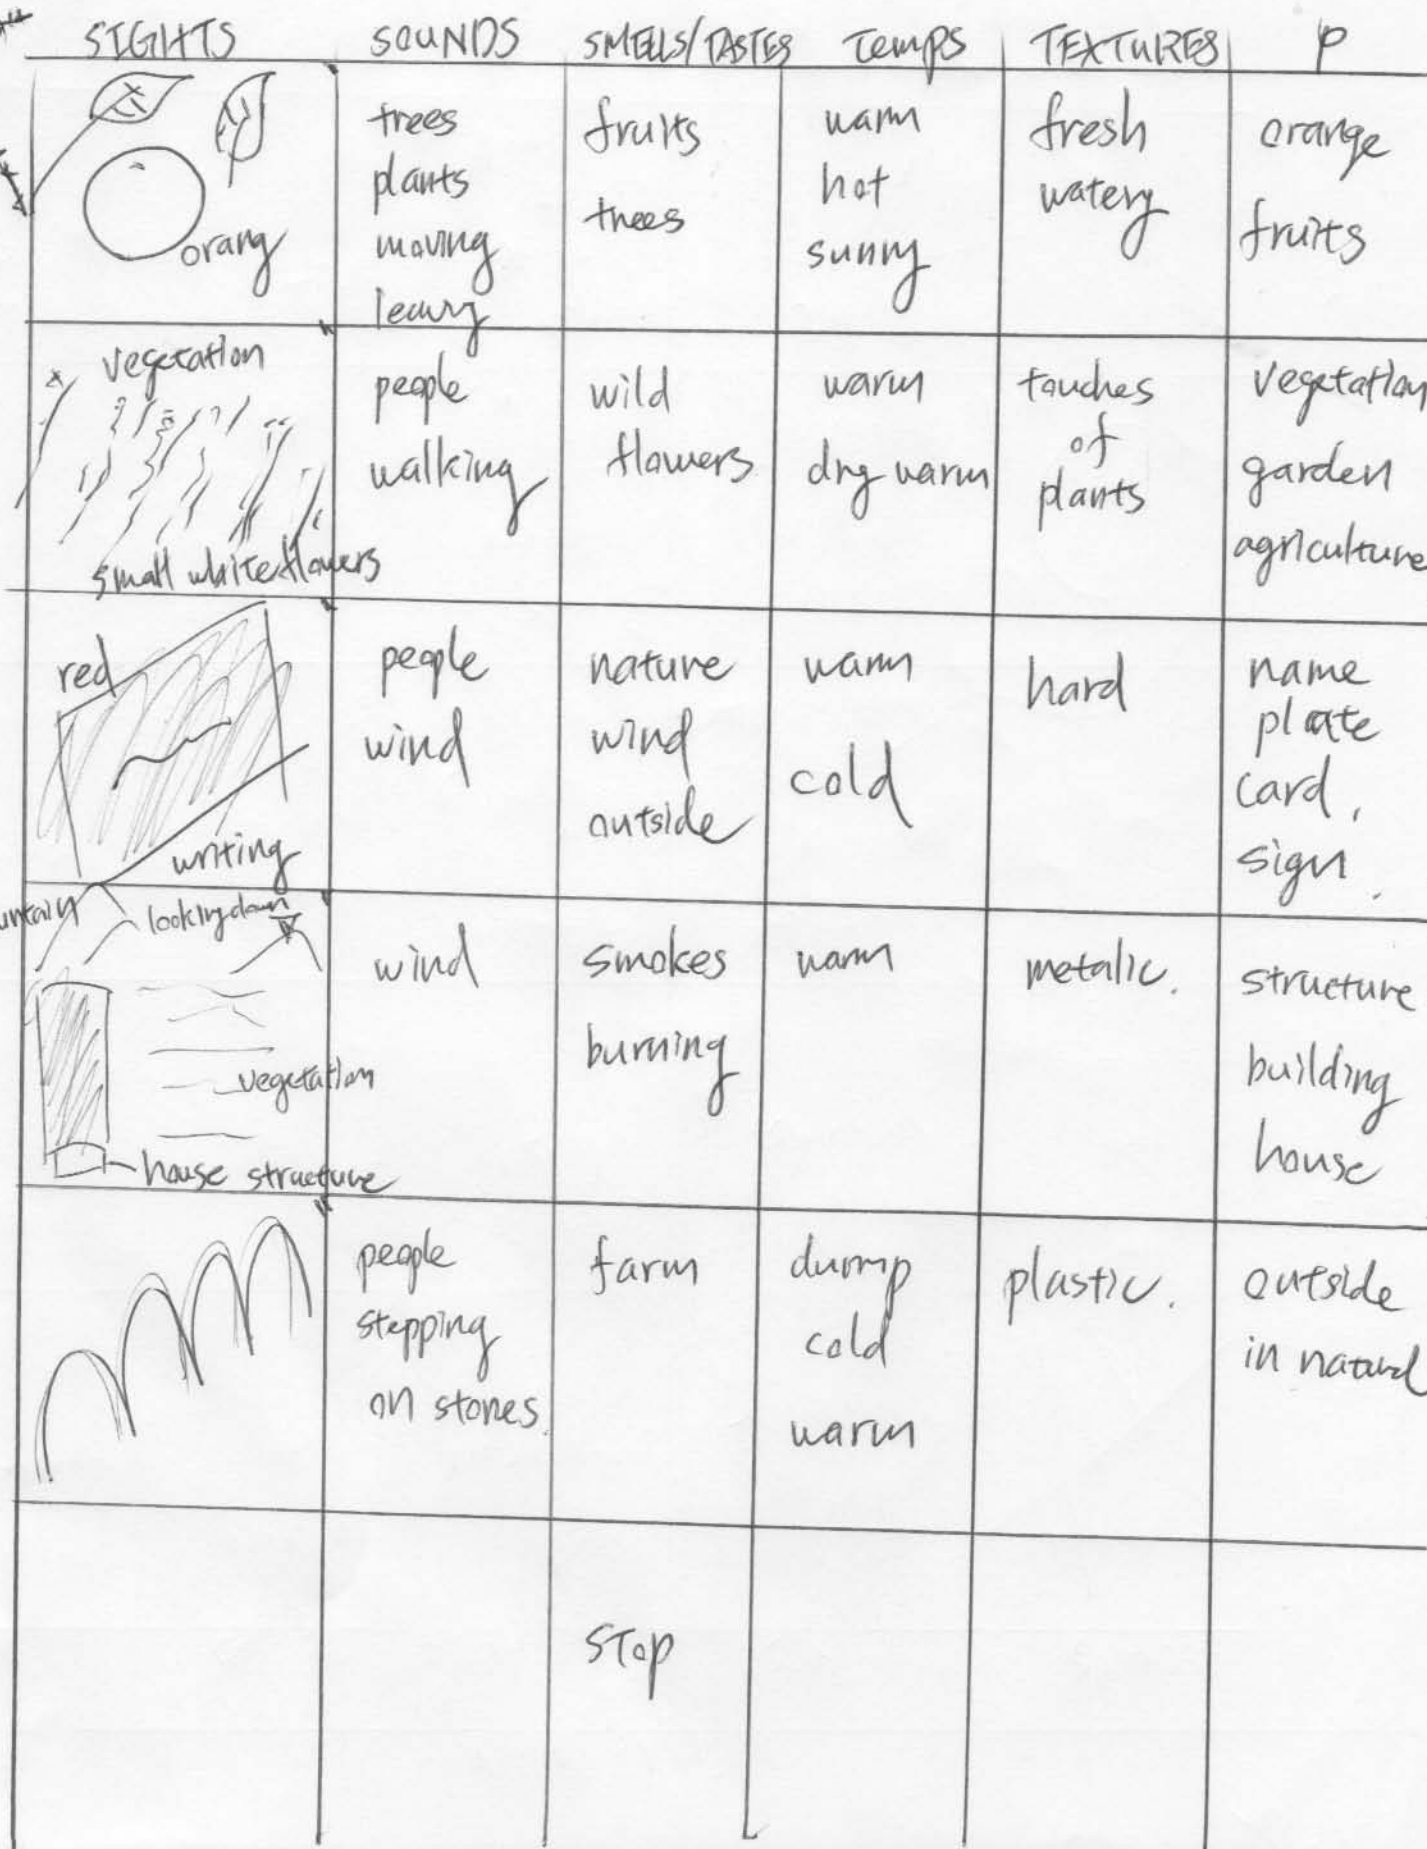 SIGHTS SOUNDS SMELLS/TASTES Temps TEXTURES P
orang
trees
plants
moving
fruits
trees
warm
hot
sunny
fresh
watery
orange
fruits
vegetation
small white flowers
people
walking
wild
flowers
warm
dry warm
touches
of
plants
vegetation
garden
agriculture
red
writing
people
wind
nature
wind
outside
warm
cold
hard
name
plate
card,
sign.
looking down
vegetation
house structure
wind
smokes
burning
warm
metalic.
structure
building
house
people
stepping
on stones.
farm
dump
cold
warm
plastic.
outside
in natural
STOP